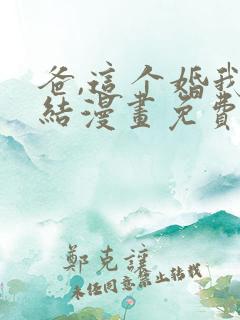 爸,這个婚我
結漫畫免費
鄭克謹
未经同意禁止转载